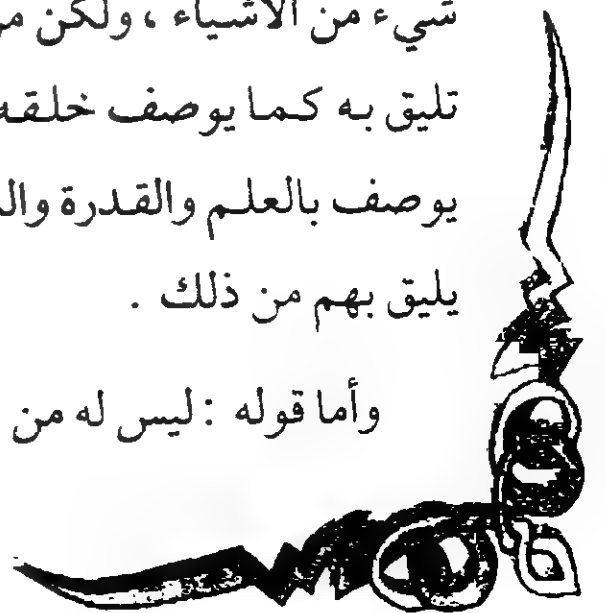 شيء من الأشياء ، ولكن
تليق به كما يوصف خلقه
يوصف بالعلم والقدرة
يليق بهم من ذلك .
وأما قوله : ليس له من